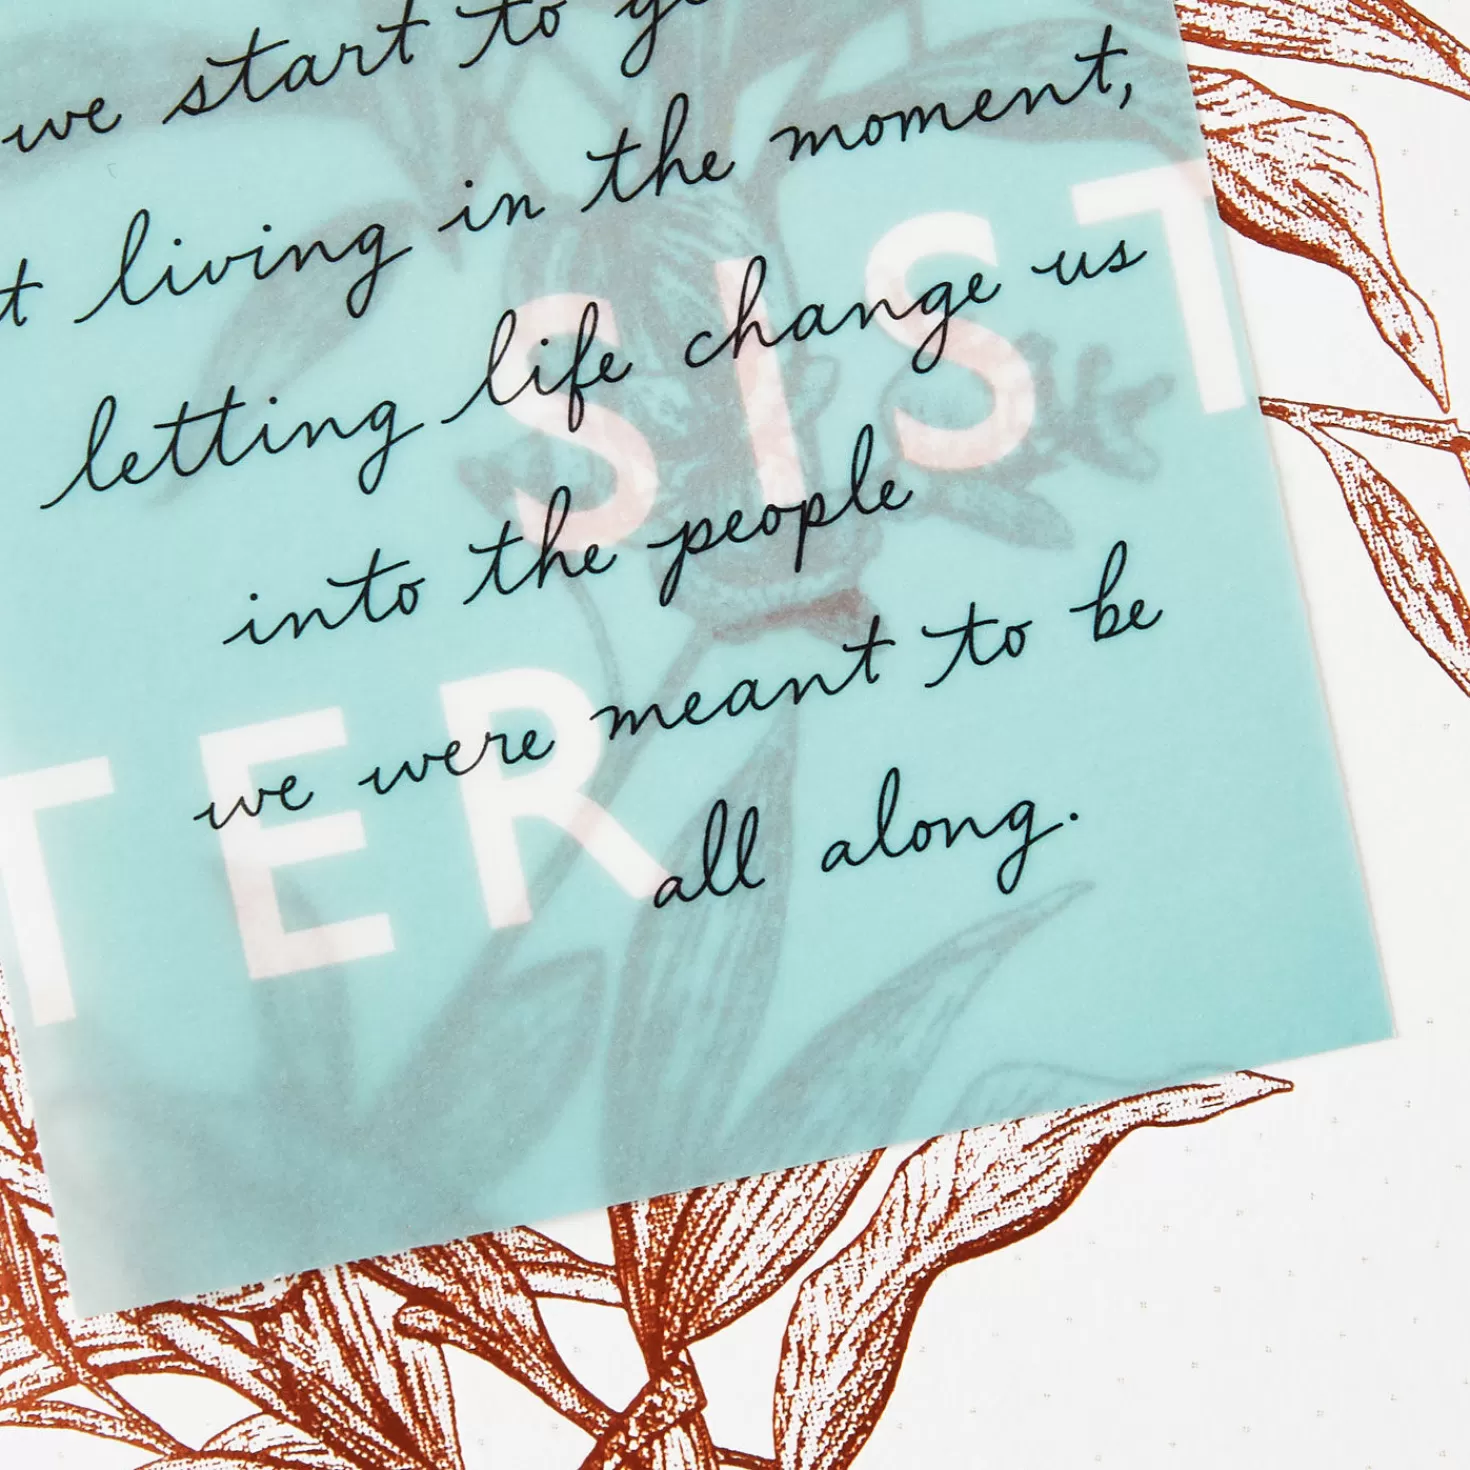 we start to
living in the moment,
letting life change us
into the people
we were meant to be
all along.
SIST
TER